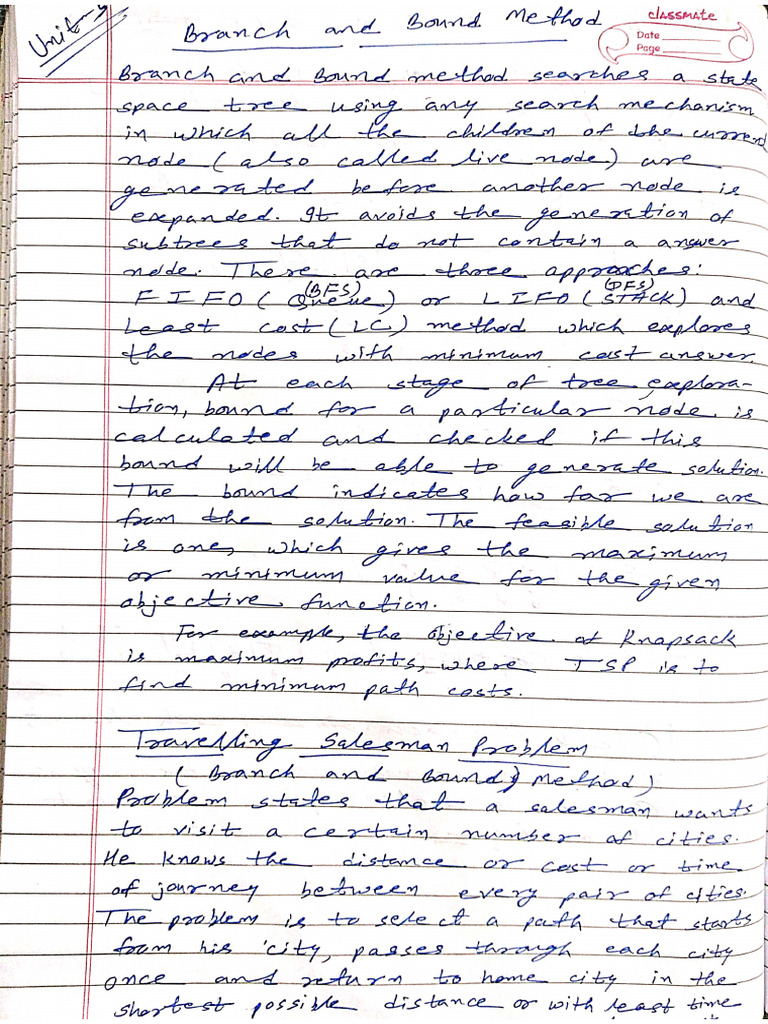 Unit-5
Branch and Bound Method
classmate
Date
Page
Branch and Bound method searches a state
space tree using any search mechanism
in which all the children of the current
node (also called live node) are
generated before another node is
expanded. It avoids the generation of
subtrees that do not contain a answer
node. There are three approaches:
(BFS) (DFS)
FIFO (Queue) or LIFO (STACK) and
Least cost (LC) method which explores
the nodes with minimum cost answer.
At each stage of tree explora-
tion, bound for a particular node is
calculated and checked if this
bound will be able to generate solution.
The bound indicates how far we are
from the solution. The feasible solution
is one, which gives the maximum
or minimum value for the given
objective function.
For example, the objective of Knapsack
is maximum profits, where TSP is to
find minimum path costs.
Travelling Salesman Problem
(Branch and Bound) Method)
Problem states that a salesman wants
to visit a certain number of cities.
He knows the distance or cost or time
of journey between every pair of cities.
The problem is to select a path that starts
from his city, passes through each city
once and return to home city in the
shortest possible distance or with least time